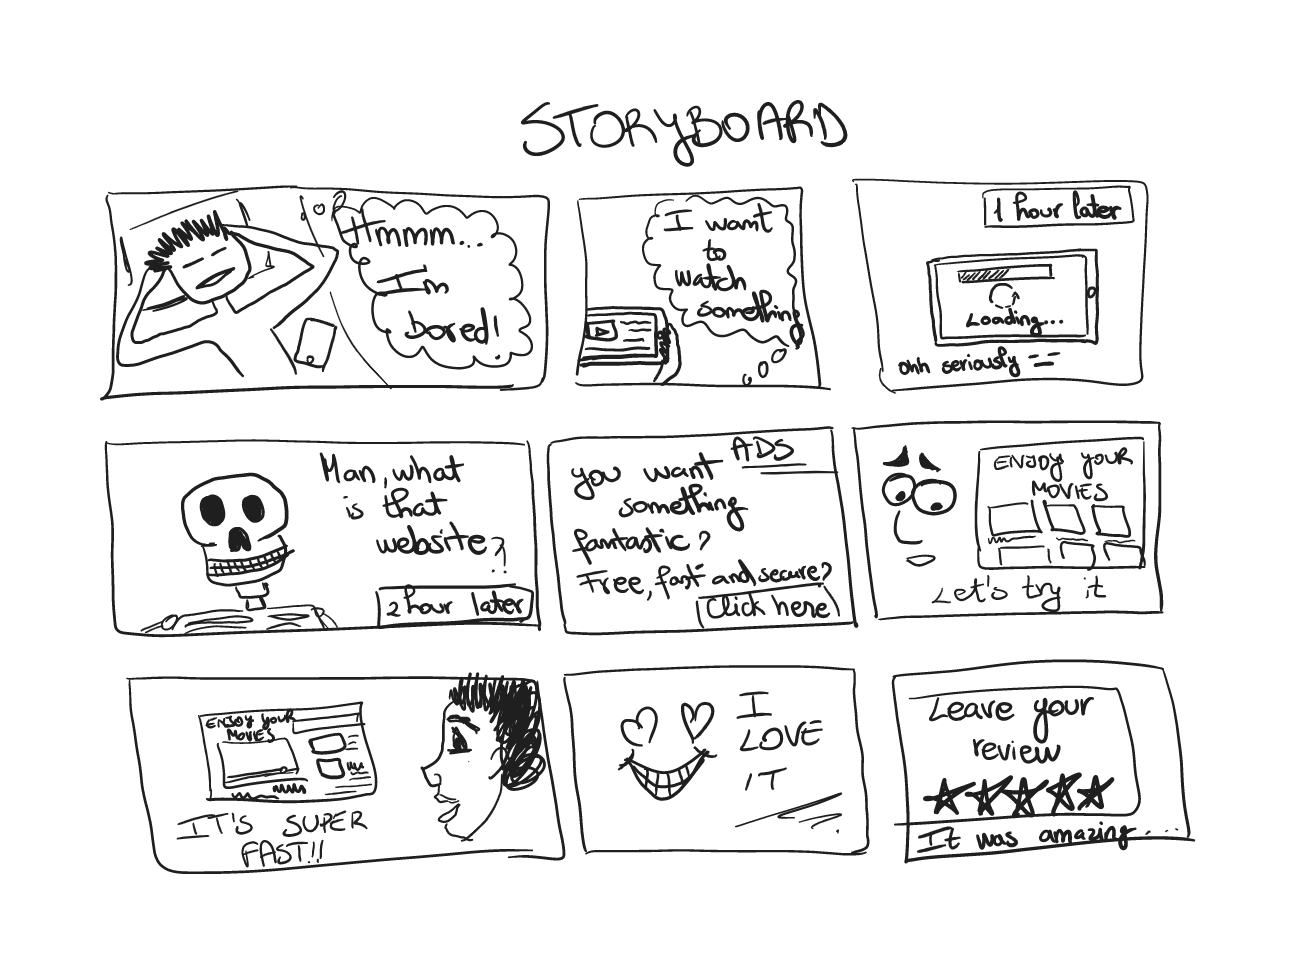 STORYBOARD
Hmmm...
I'm
bored!
I want
to
watch
something
1 hour later
Loading...
ohh seriously
Man, what
is that
website?!
2 hour later
ADS
you want
something
fantastic?
Free, fast and secure?
Click here
ENJOY YOUR
MOVIES
Let's try it
ENJOY YOUR
MOVIES
IT'S SUPER
FAST!!
I
LOVE
IT
Leave your
review
It was amazing....